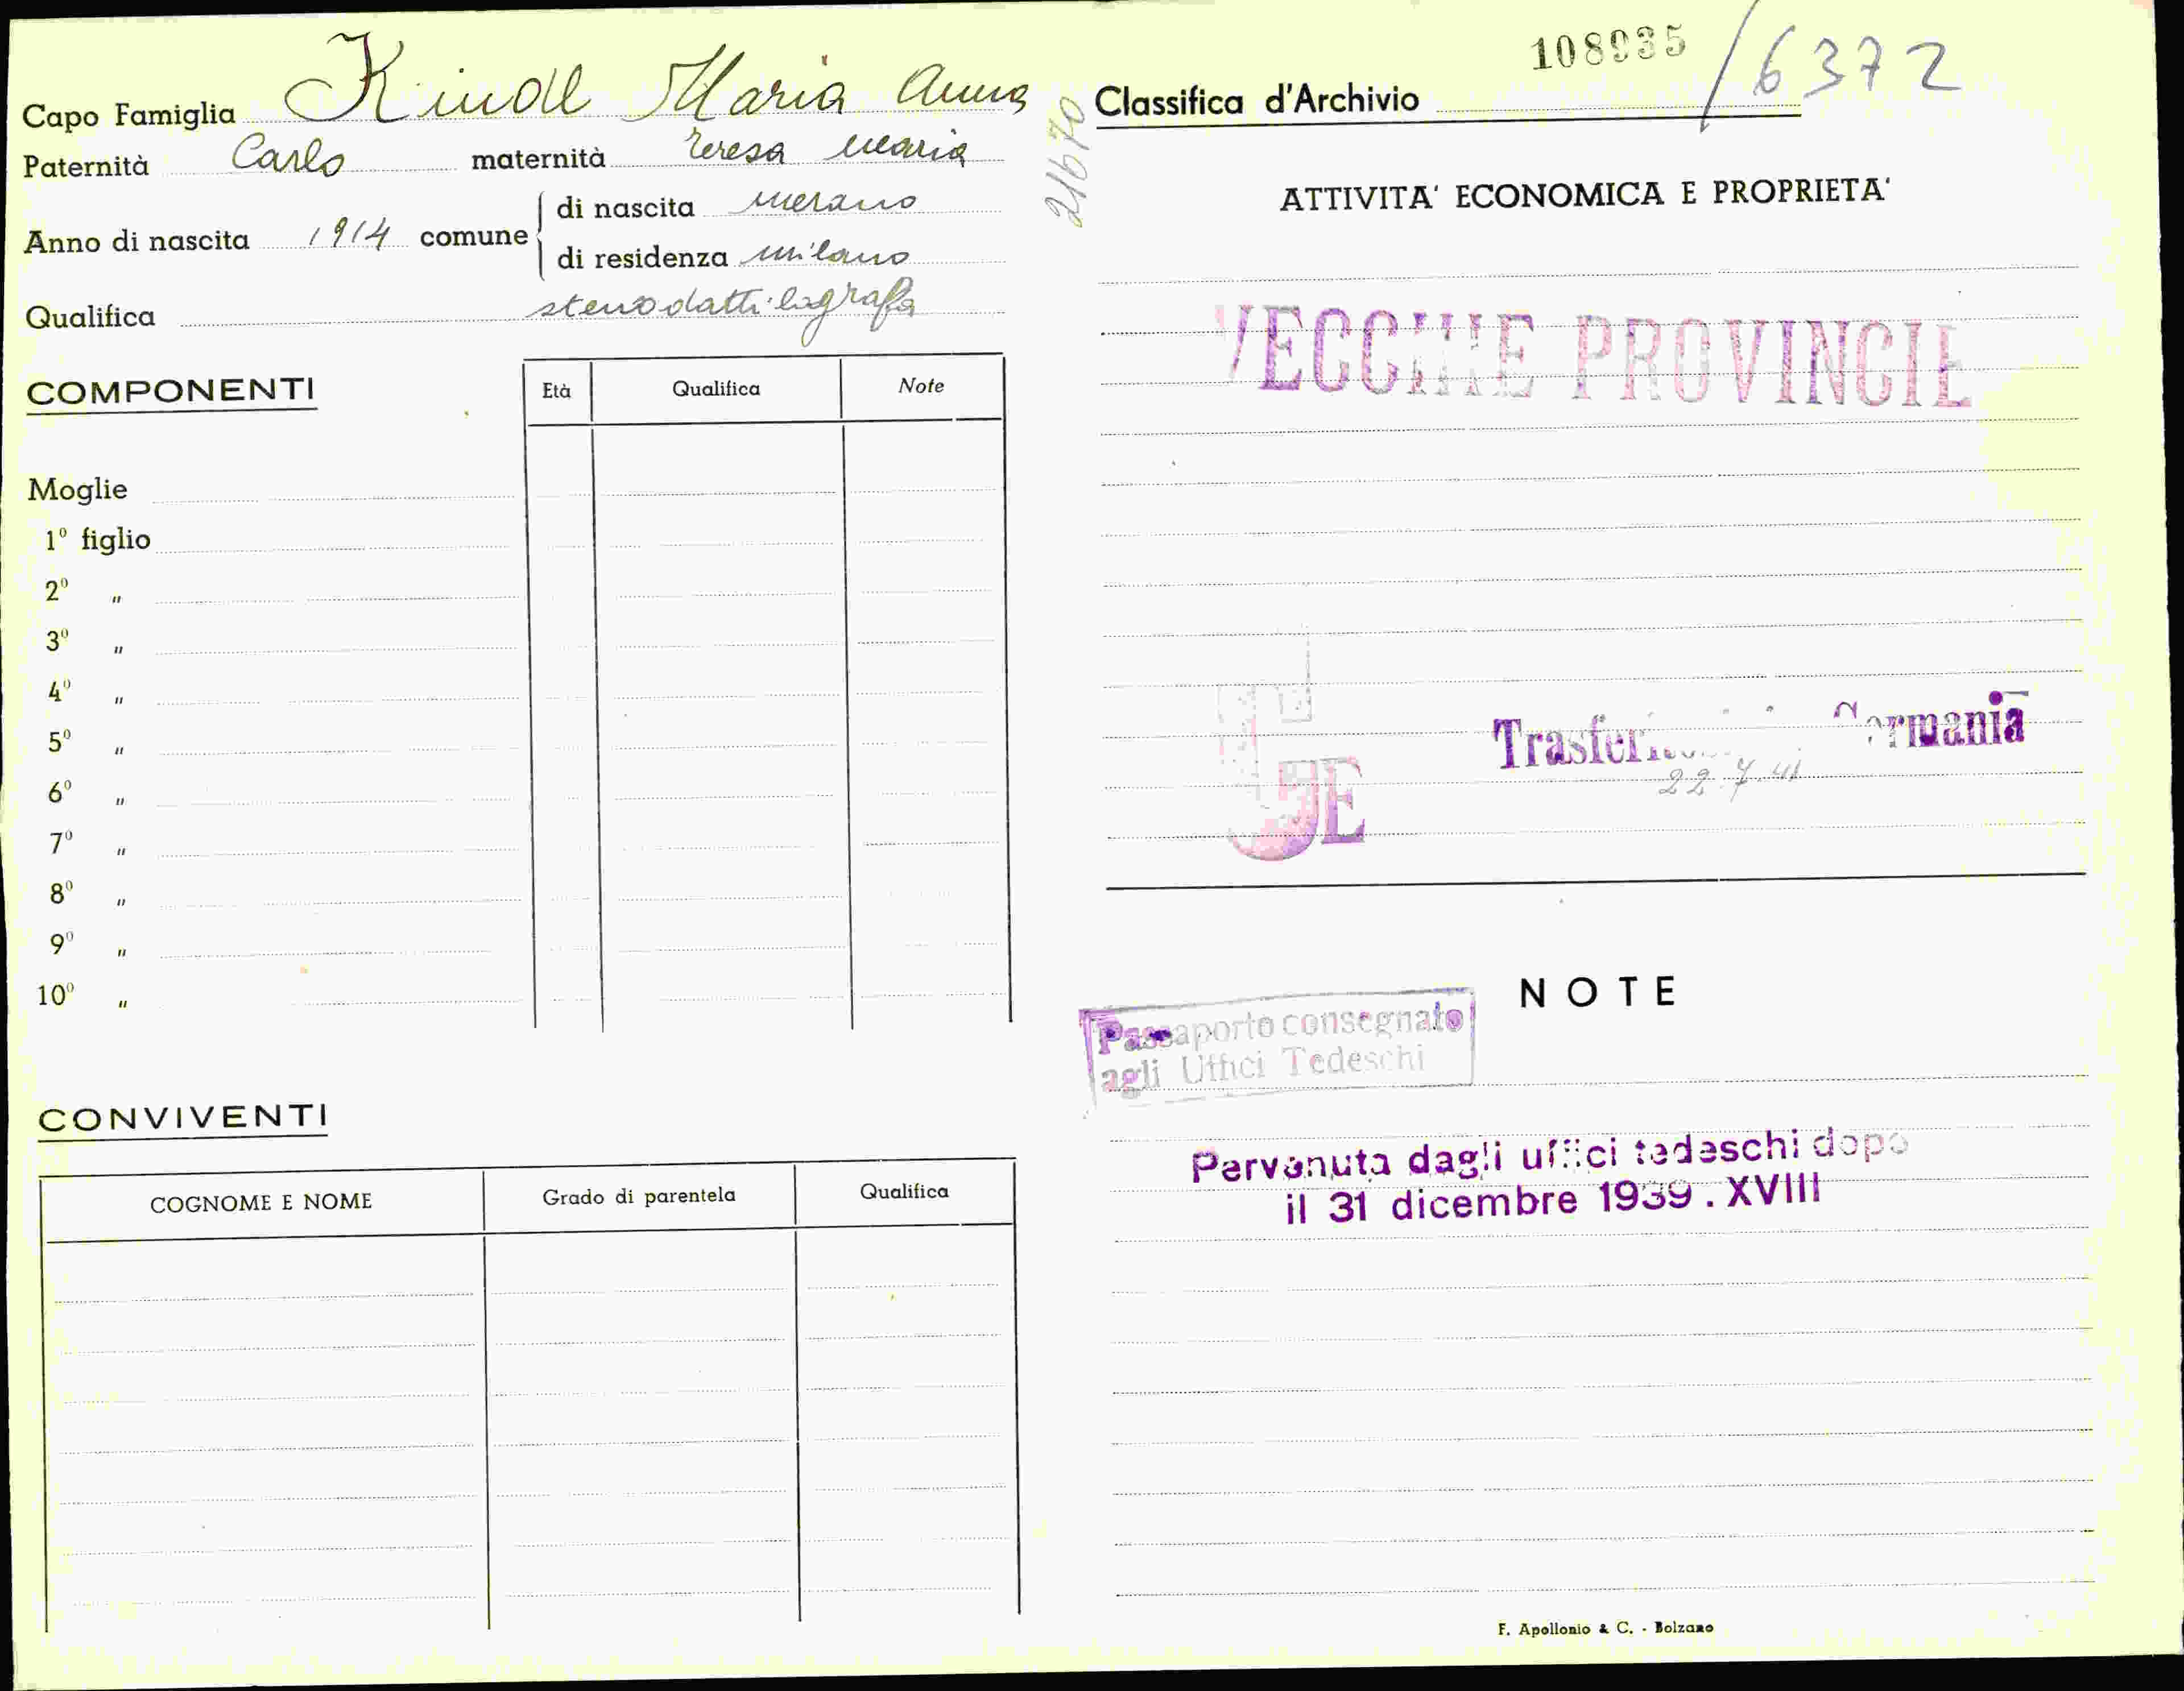 Capo Famiglia Kindl Maria Anna
Paternità Carlo maternità Teresa Maria
Anno di nascita 1914 comune di nascita Merano
di residenza Milano
Qualifica stenodattilografa
COMPONENTI Età Qualifica Note
Moglie
1º figlio
2º "
3º "
4º "
5º "
6º "
7º "
8º "
9º "
10º "
CONVIVENTI
COGNOME E NOME Grado di parentela Qualifica
216170
108935 /6372
Classifica d'Archivio
ATTIVITA' ECONOMICA E PROPRIETA'
VECCHIE PROVINCIE
Germania
22.7.41
NOTE
Passaporto consegnato
agli Uffici Tedeschi
Pervenuta dagli uffici tedeschi dopo
il 31 dicembre 1939.XVIII
F. Apollonio & C. - Bolzano